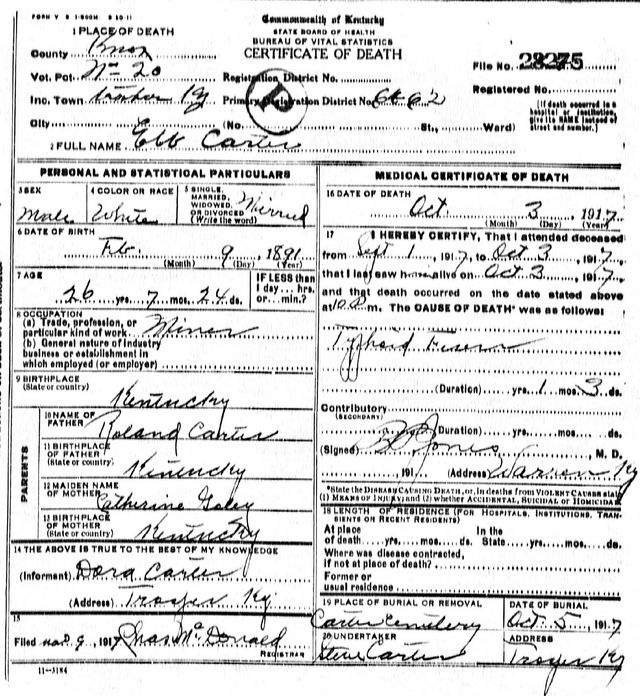 FORM V S 1-500M 8 10-11
Commonwealth of Kentucky
STATE BOARD OF HEALTH
BUREAU OF VITAL STATISTICS
CERTIFICATE OF DEATH
1 PLACE OF DEATH
County Knox
Vot. Pct No 20
Inc. Town
City
Registration District No.
Primary Registration District No.
(No. St., Ward)
File No. 28275
Registered No.
(If death occurred in a
hospital or institution,
give its NAME instead of
street and number.)
2 FULL NAME Elb Carter
PERSONAL AND STATISTICAL PARTICULARS
3 SEX
Male
4 COLOR OR RACE
White
5 SINGLE,
MARRIED,
WIDOWED,
OR DIVORCED
(Write the word)
Mirried
6 DATE OF BIRTH
Feb. 9, 1891
(Month) (Day) (Year)
7 AGE
26 yrs. 7 mos. 24 ds.
IF LESS than
1 day... hrs.
or... min.?
8 OCCUPATION
(a) Trade, profession, or
particular kind of work Miner
(b) General nature of industry
business or establishment in
which employed (or employer)
9 BIRTHPLACE
(State or country)
Kentucky
PARENTS
10 NAME OF
FATHER
Roland Carter
11 BIRTHPLACE
OF FATHER
(State or country)
Kentucky
12 MAIDEN NAME
OF MOTHER
Catherine
13 BIRTHPLACE
OF MOTHER
(State or country)
Kentucky
14 THE ABOVE IS TRUE TO THE BEST OF MY KNOWLEDGE
(Informant) Dora Carter
(Address) Trosper Ky
15
Filed 9, 1917 Chas McDonald
REGISTRAR
11-3184
MEDICAL CERTIFICATE OF DEATH
16 DATE OF DEATH
Oct 3, 1917
(Month) (Day) (Year)
17 I HEREBY CERTIFY, That I attended deceased
from Sept 1, 1917, to Oct 3, 1917,
that I last saw him alive on Oct 3, 1917,
and that death occurred on the date stated above
at 10 P m. The CAUSE OF DEATH* was as follows:
Typhoid Fever
(Duration) yrs. 1 mos. 3 ds.
Contributory
(SECONDARY)
(Duration) yrs. mos. ds.
(Signed) Jones, M. D.
, 191 (Address) Warren Ky
*State the DISEASE CAUSING DEATH, or, in deaths from VIOLENT CAUSES state
(1) MEANS OF INJURY; and (2) whether ACCIDENTAL, SUICIDAL or HOMICIDAL
18 LENGTH OF RESIDENCE (FOR HOSPITALS, INSTITUTIONS, TRAN-
SIENTS OR RECENT RESIDENTS)
At place
of death yrs. mos. ds.
In the
State yrs. mos. ds.
Where was disease contracted,
if not at place of death?
Former or
usual residence
19 PLACE OF BURIAL OR REMOVAL
Carter Cemetery
DATE OF BURIAL
Oct 5, 1917
20 UNDERTAKER
Steve Carter
ADDRESS
Trosper Ky